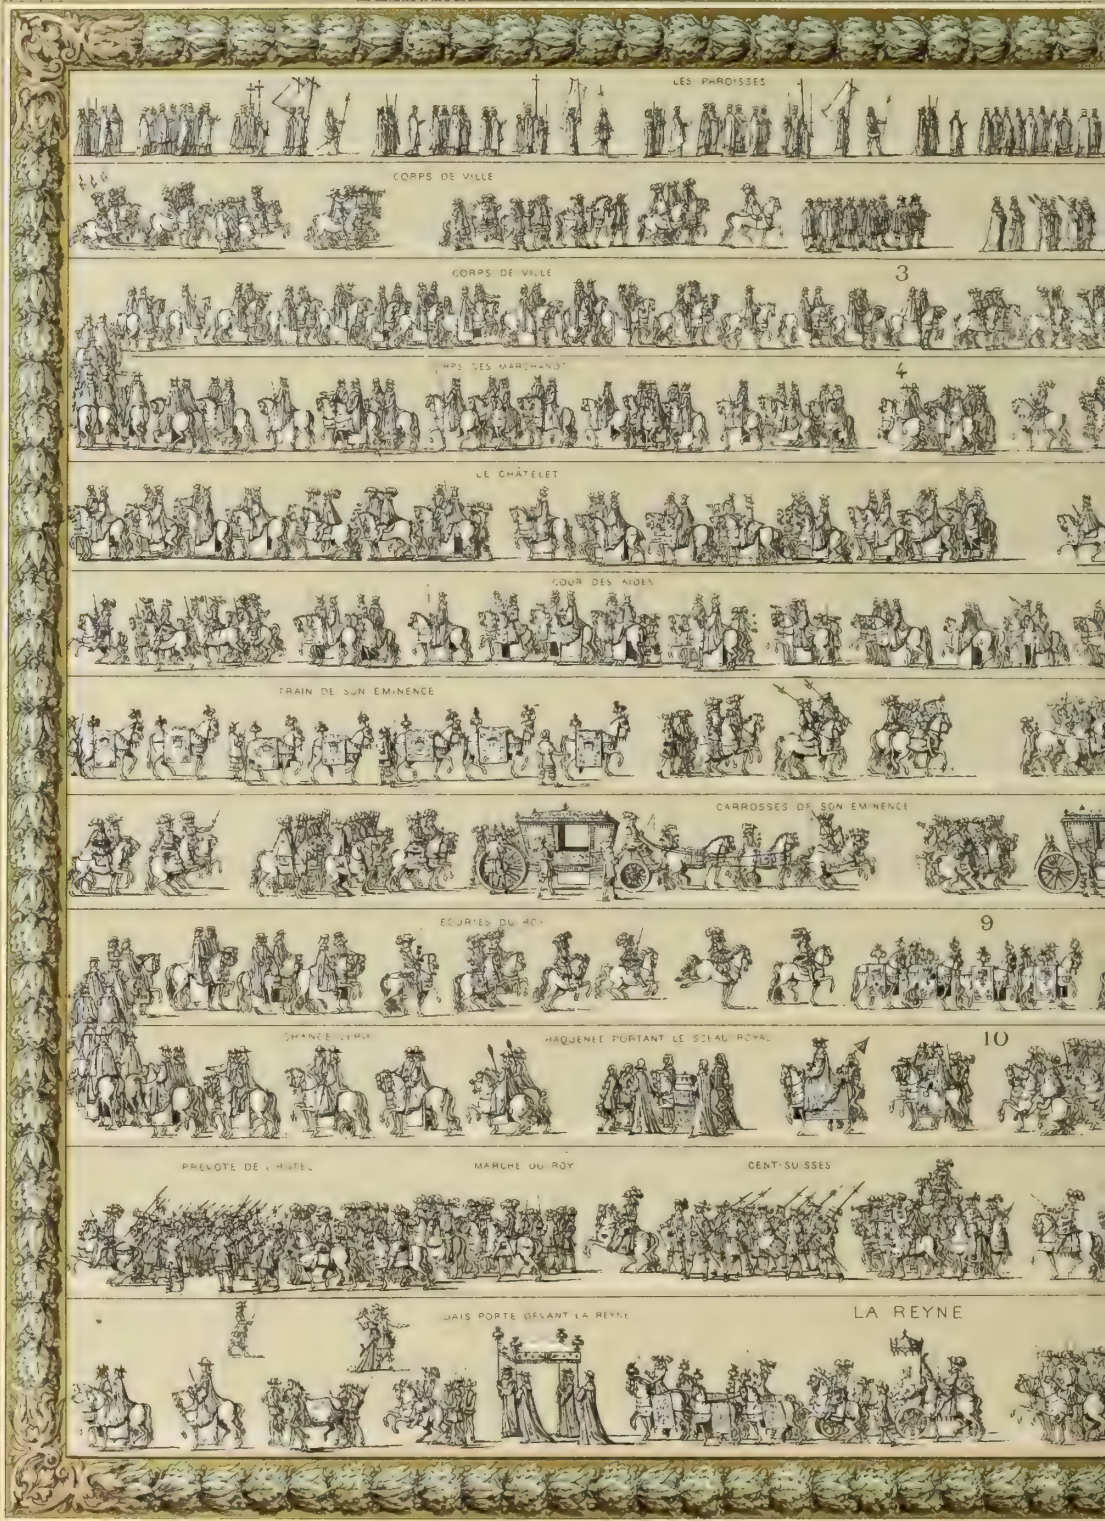 LES PAROISSES
CORPS DE VILLE
CORPS DE VILLE
3
DES MARCHANDS
4
LE CHÂTELET
COUR DES AIDES
TRAIN DE SON EMINENCE
CARROSSES DE SON EMINENCE
ECURIES DU ROY
9
CHANCELLERIE
HAQUENEE PORTANT LE SCEAU ROYAL
10
PREVOTE DE L'HOTEL
MARCHE DU ROY
CENT-SUISSES
DAIS PORTE DEVANT LA REYNE
LA REYNE